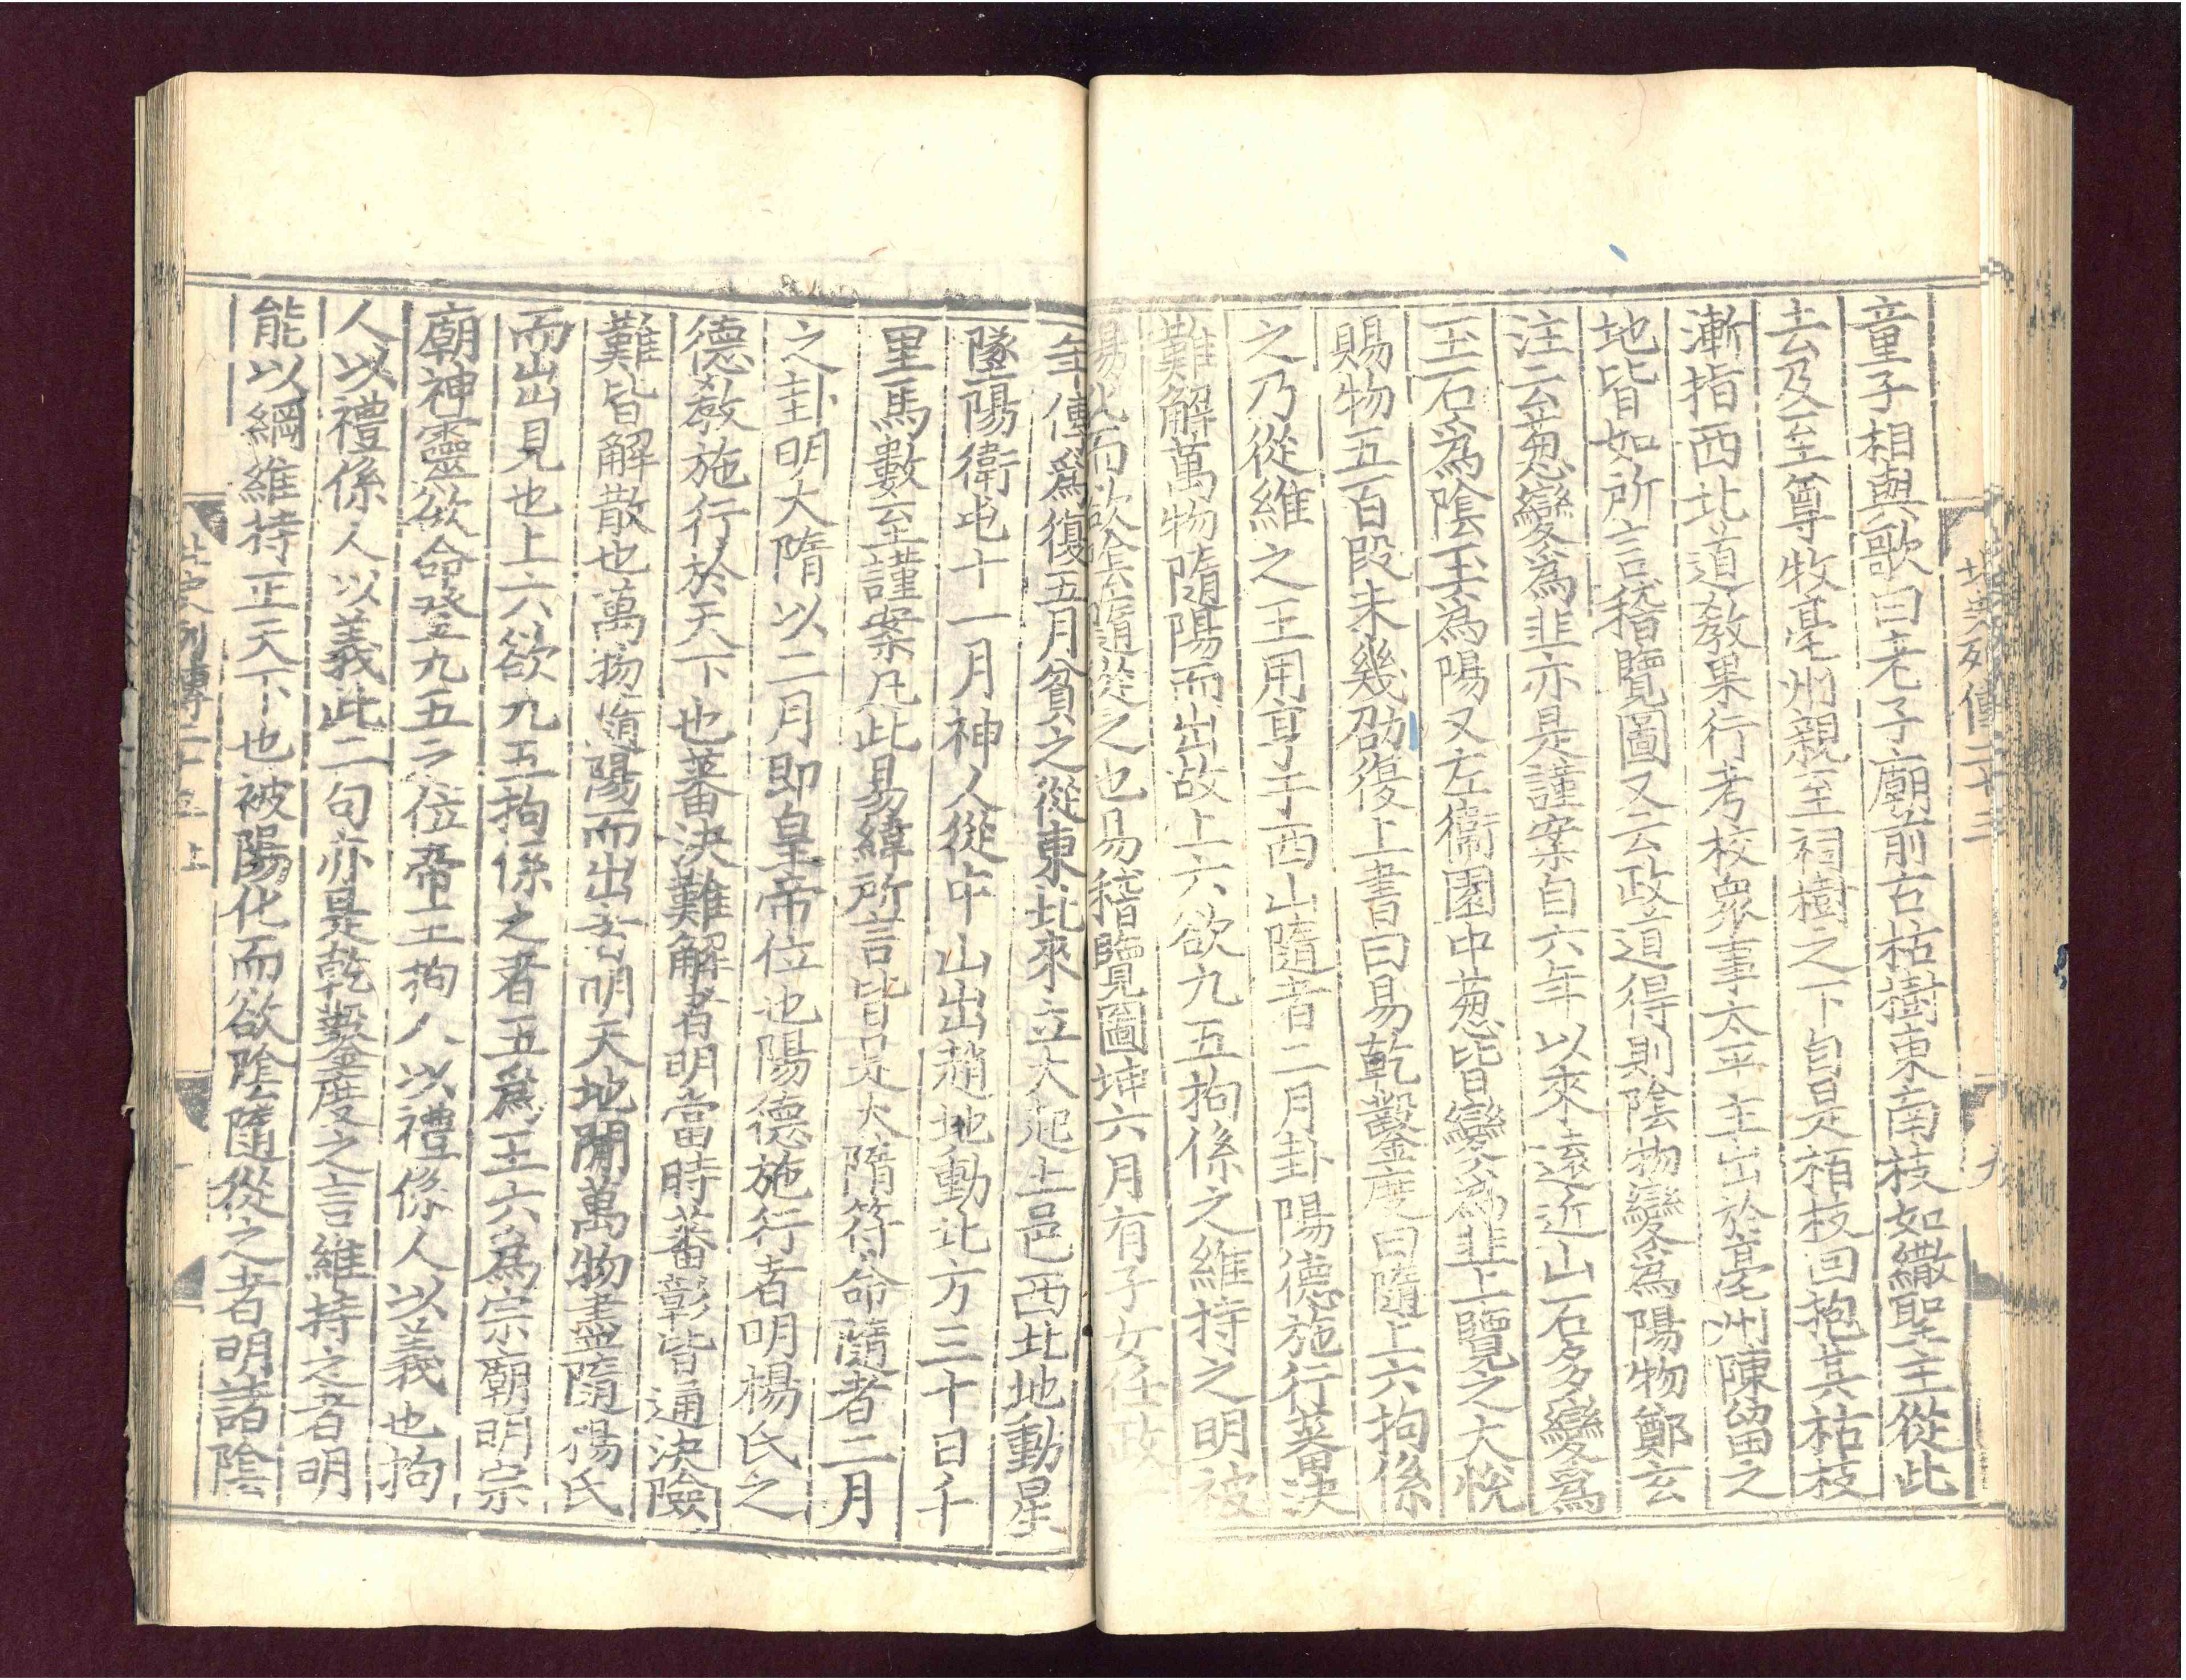 童子相與歌曰老子廟前古枯樹東南枝如繖聖主從此
去及至尊牧亳州親至祠樹之下自是柏枝回抱其枯枝
漸指西北道教果行考校衆事太平主出於亳州陳留之
地皆如所言稽覽圖又云政道得則陰物變爲陽物鄭玄
注云葱變爲韭亦是謹案自六年以來遠近山石多變爲
玉石爲陰玉爲陽又左衞園中葱皆變爲韭上覽之大悅
賜物五百段未幾劭復上書曰易乾鑿度曰隨上六拘係
之乃從維之王用亨于西山隨者二月卦陽德施行蕃決
難解萬物隨陽而出故上六欲九五拘係之維持之明被
陽化而欲陰隨從之也易稽覽圖坤六月有子女任政
年傳爲復五月貧之從東北來立大起土邑西北地動星
墜陽衛屯十一月神人從中山出趙地動北方三十日千
里馬數至謹案凡此易緯所言皆是大隋符命隨者二月
之卦明大隋以二月即皇帝位也陽德施行者明楊氏之
德教施行於天下也蕃決難解者明當時蕃彰皆通決險
難皆解散也萬物隨陽而出者明天地閒萬物盡隨楊氏
而出見也上六欲九五拘係之者五爲王六爲宗廟明宗
廟神靈欲命登九五之位帝王拘人以禮係人以義也拘
人以禮係人以義此二句亦是乾鑿度之言維持之者明
能以綱維持正天下也被陽化而欲陰隨從之者明諸陰